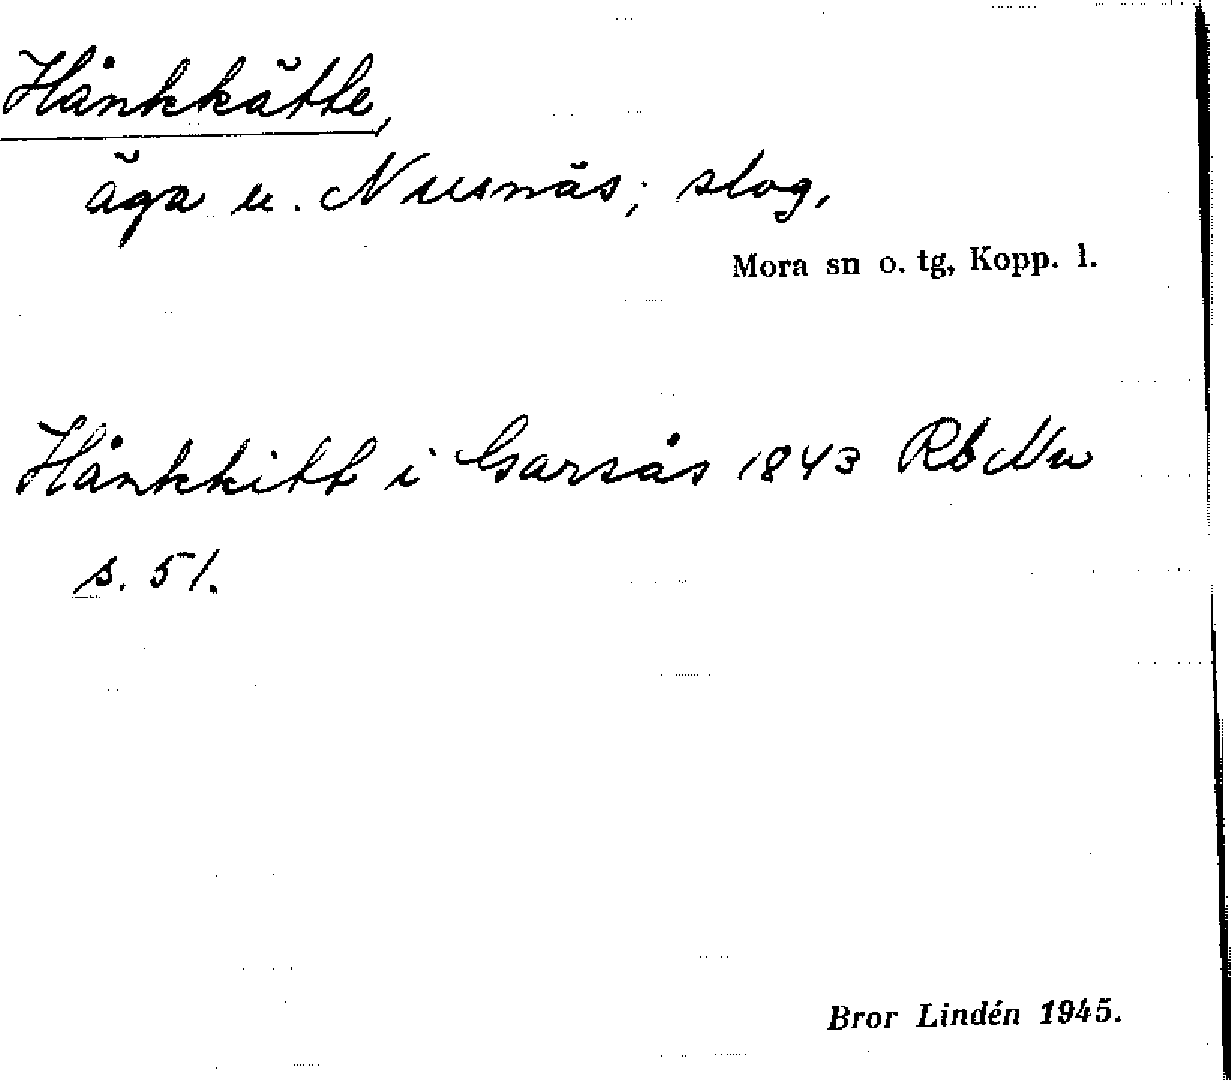 Hånkkätte,
äga u. Nusnäs; slog,
Mora sn o. tg, Kopp. l.
Hånkkitt i Garsås 1843 Rb Nu
s. 51.
Bror Lindén 1945.